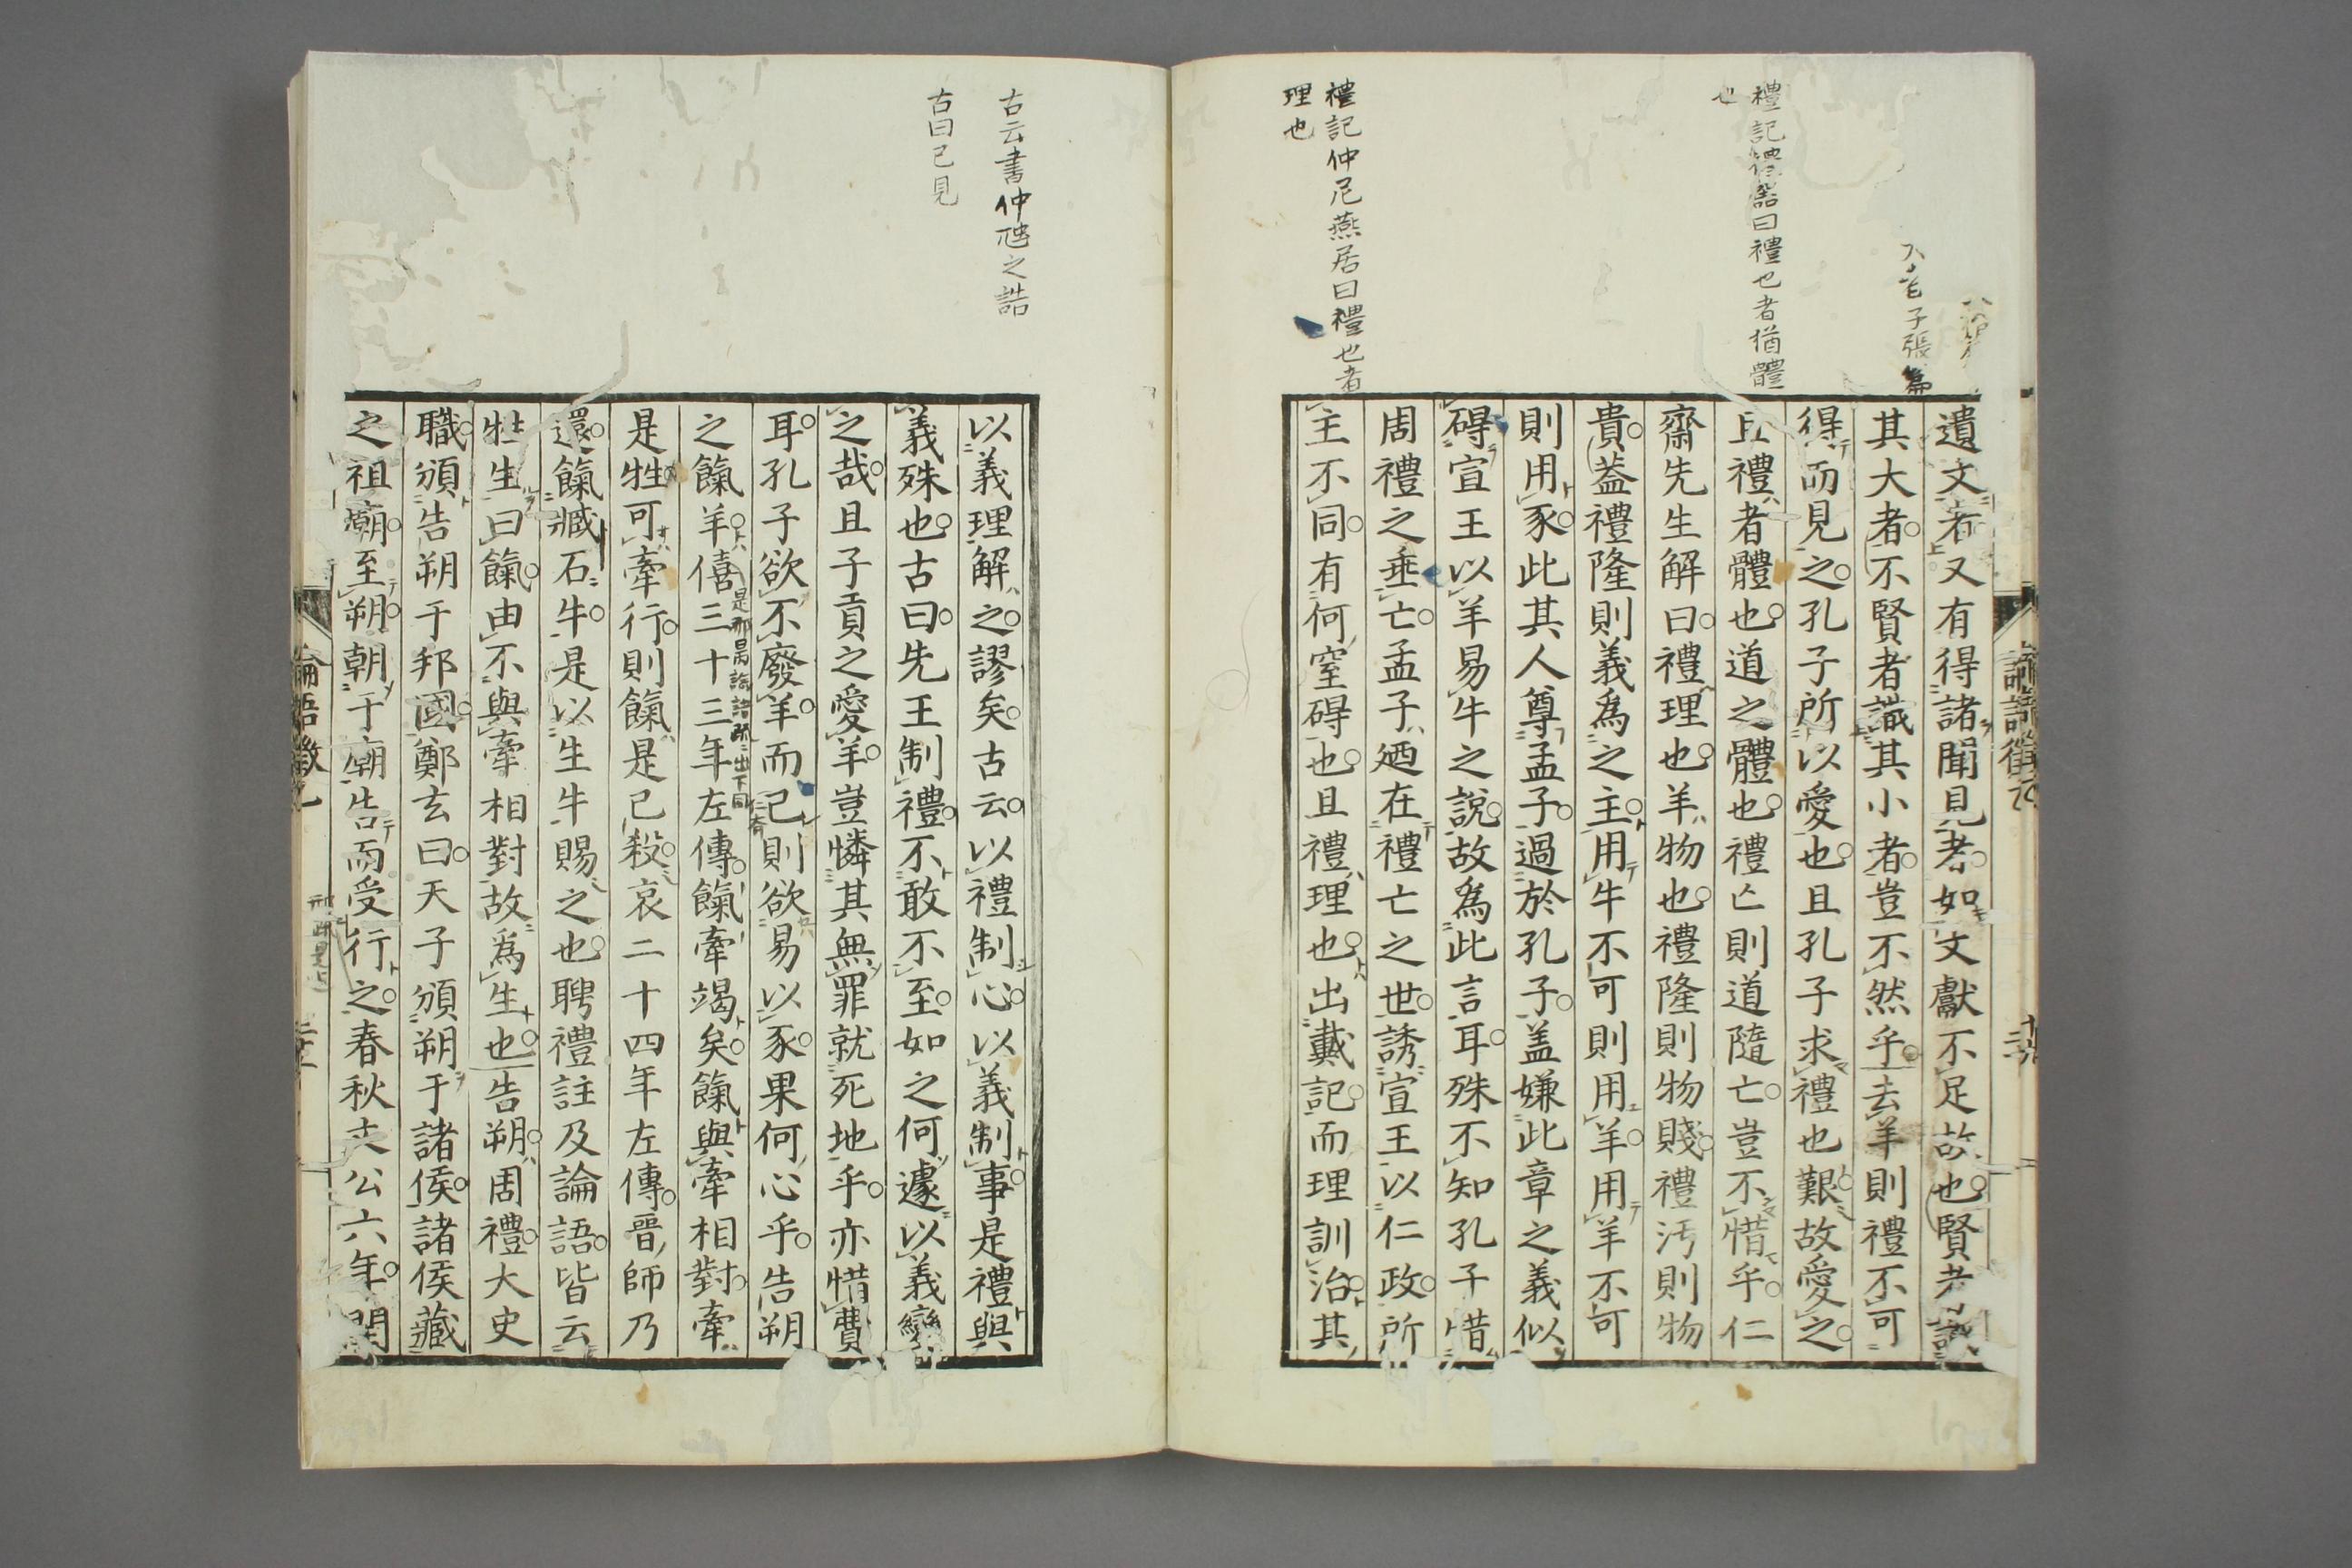 禮記禮器曰禮也者猶體
也
禮記仲尼燕居曰禮也者
理也
遺文者又有得諸聞見者如文獻不足故也賢者識
其大者不賢者識其小者豈不然乎去羊則禮不可
得而見之孔子所以愛也且孔子求禮也艱故愛之
且禮者體也道之體也禮亡則道隨亡豈不惜乎仁
齋先生解曰禮理也羊物也禮隆則物賤禮汚則物
貴蓋禮隆則義爲之主用牛不可則用羊用羊不可
則用豕此其人尊孟子過於孔子盖嫌此章之義似
碍宣王以羊易牛之說故爲此言耳殊不知孔子惜
周禮之垂亡孟子廼在禮亡之世誘宣王以仁政所
主不同有何窒碍也且禮理也出戴記而理訓治其
古云書仲虺之誥
古曰已見
以義理解之謬矣古云以禮制心以義制事是禮與
義殊也古曰先王制禮不敢不至如之何遽以義變
之哉且子貢之愛羊豈憐其無罪就死地乎亦惜費
耳孔子欲不廢羊而已則欲易以豕果何心乎告朔
之餼羊僖三十三年左傳餼牽竭矣餼與牽相對牽
是牲可牽行則餼是已殺哀二十四年左傳晉師乃
還餼臧石牛是以生牛賜之也聘禮註及論語皆云
牲生曰餼由不與牽相對故爲生也告朔周禮大史
職頒告朔于邦國鄭玄曰天子頒朔于諸侯諸侯藏
之祖廟至朔朝于廟告而受行之春秋文公六年閏